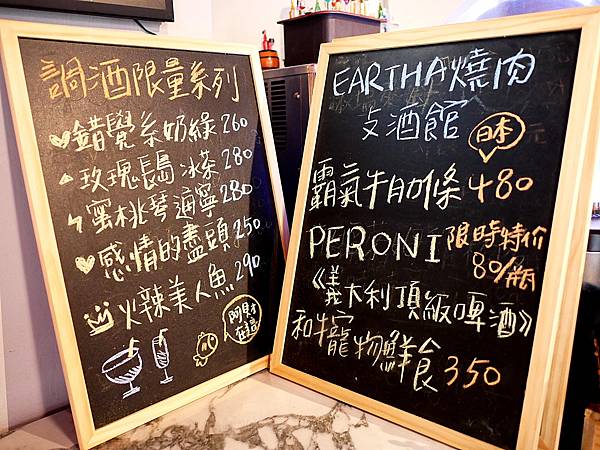 調酒限量系列
錯覺系奶綠 260
玫瑰長島冰茶 280
蜜桃琴通寧 280
感情的盡頭 250
火辣美人魚 290
EARTHA燒肉
支酒館
日本
霸氣牛肋條 480
PERONI 限時特价
80/瓶
《義大利頂級啤酒》
和牛寵物鮮食 350